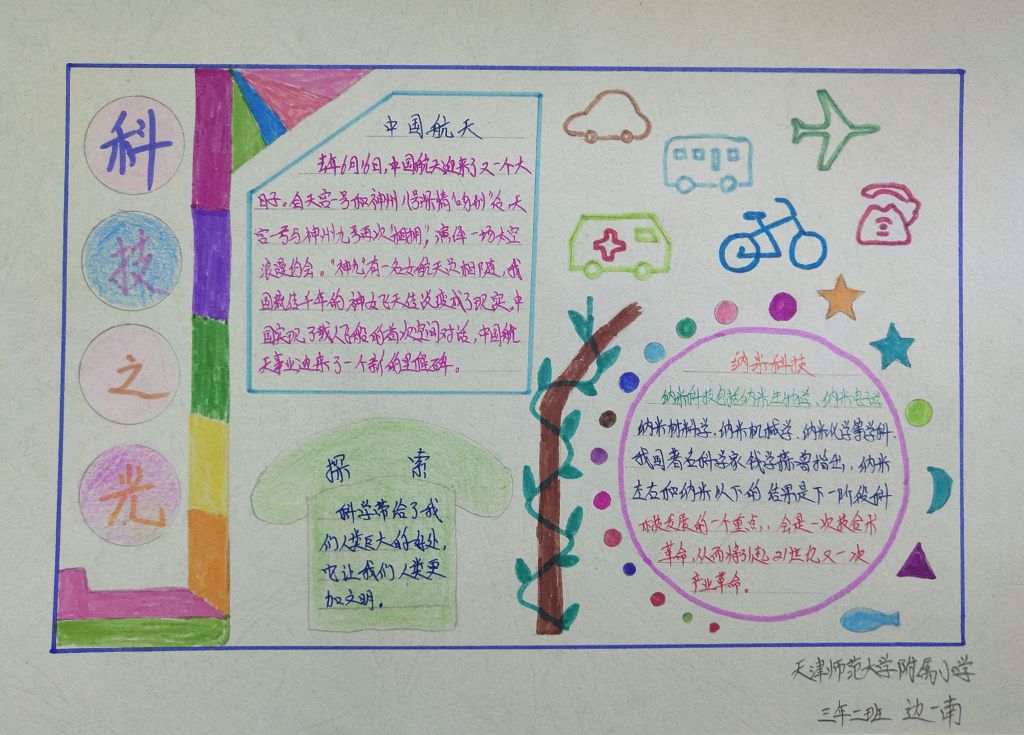 科
技
之
光
中国航天
去年6月16日,中国航天迎来了又一个大
日子。自天宫一号和神州八号深情“吻别”后,天
宫一号与神州九号再次“相拥”,演绎一场太空
浪漫约会。“神九”有一名女航天员相随,我
国流传千年的神女飞天传说变成了现实。中
国实现了载人飞船的首次空间对话,中国航
天事业迎来了一个新的里程碑。
探索
科学带给了我
们人类巨大的好处,
它让我们人类更
加文明。
纳米科技
纳米科技包括纳米生物学、纳米电子学
纳米材料学、纳米机械学、纳米化学等学科.
我国著名科学家钱学森曾指出,纳米
左右和纳米以下的结果是下一阶段科
技发展的一个重点,会是一次技术
革命,从而将引起21世纪又一次
产业革命。
天津师范大学附属小学
三年二班 边一南